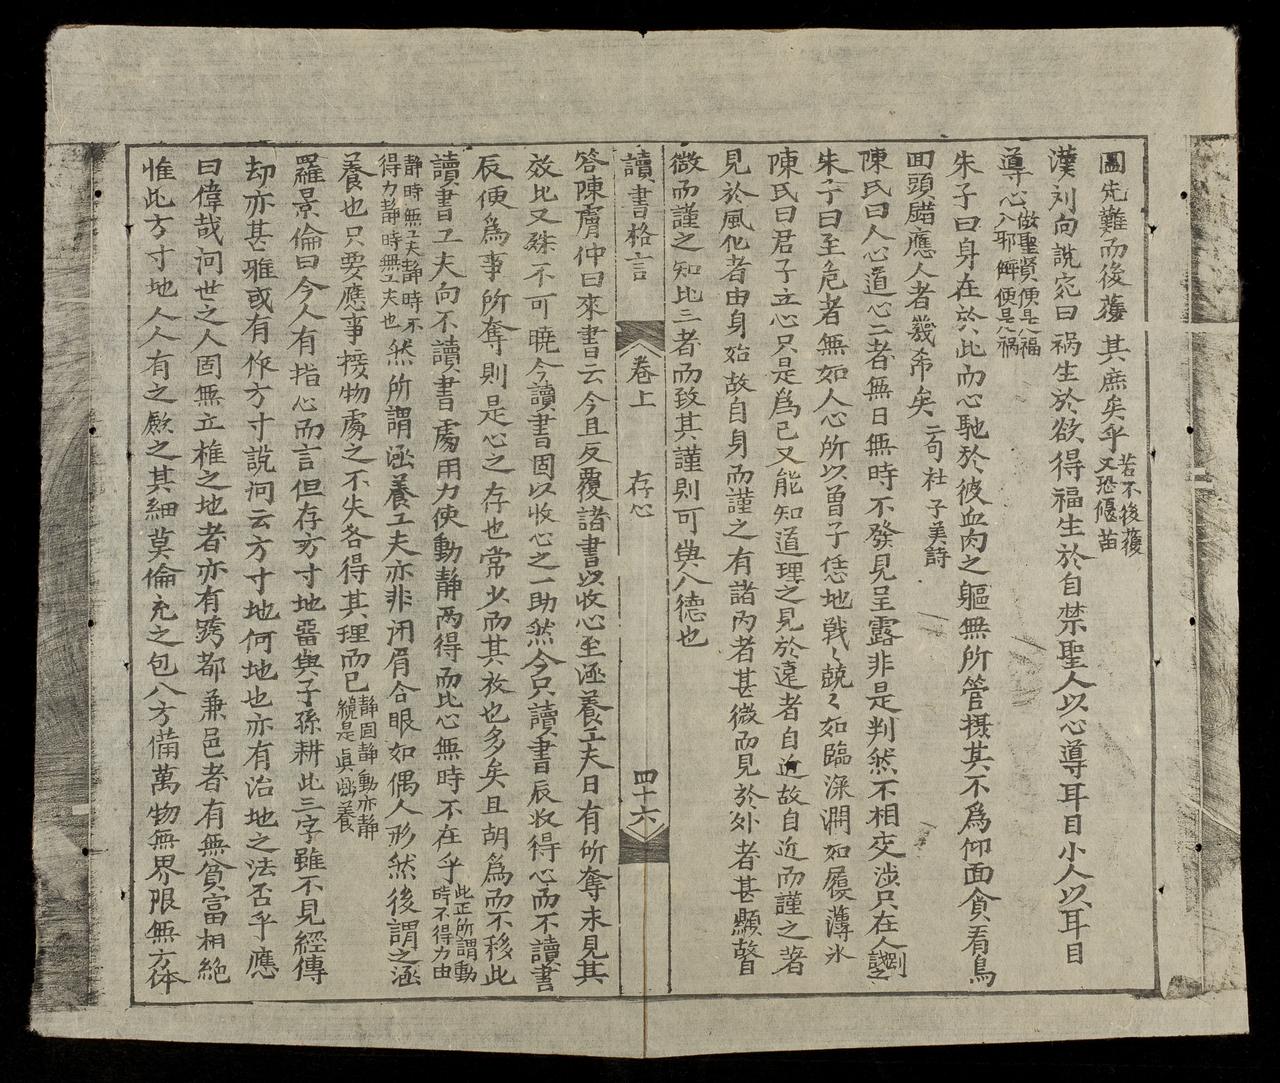 圖先難而後獲其庶矣乎若不後獲又恐偃苗
漢刘向說宛曰祸生於欲得福生於自禁聖人以心導耳目小人以耳目
導心做聖賢便是福入邪僻便是祸
朱子曰身在於此而心馳於彼血肉之軀無所管摄其不爲仰面貪看鳥
回頭錯應人者幾希矣二句杜子美詩
陳氏曰人心道心二者無日無時不發見呈露非是判然不相交涉只在人識別之
朱子曰至危者無如人心所以曽子恁地戰〻兢〻如臨深渊如履薄氷
陳氏曰君子立心只是爲已又能知道理之見於遠者自近故自近而謹之著
見於風化者由身始故自身而謹之有諸内者甚微而見於外者甚顯故自
微而謹之知此三者而致其謹則可與入德也
讀書格言 卷上 存心 四十六
答陳膚仲曰來書云今且反覆諸書以收心至涵養工夫日有所奪未見其
效此又殊不可暁今讀書固以收心之一助然今只讀書辰收得心而不讀書
辰便爲事所奪則是心之存也常少而其放也多矣且胡爲而不移此
讀書工夫向不讀書處用力使動静两得而此心無時不在乎此正所謂動時不得力由
静時無工夫静時不得力静時無工夫也然所謂涵養工夫亦非闭眉合眼如偶人形然後謂之涵
養也只要應事接物處之不失各得其理而已静固静動亦静纔是眞涵養
羅景倫曰今人有指心而言但存方寸地畱與子孫耕此三字雖不見經傳
却亦甚雅或有作方寸說河云方寸地何地也亦有治地之法否乎應
曰偉哉河世之人固無立椎之地者亦有跨都兼邑者有無貧富相絶
惟此方寸地人人有之歛之其細莫倫充之包八方備萬物無界限無方体